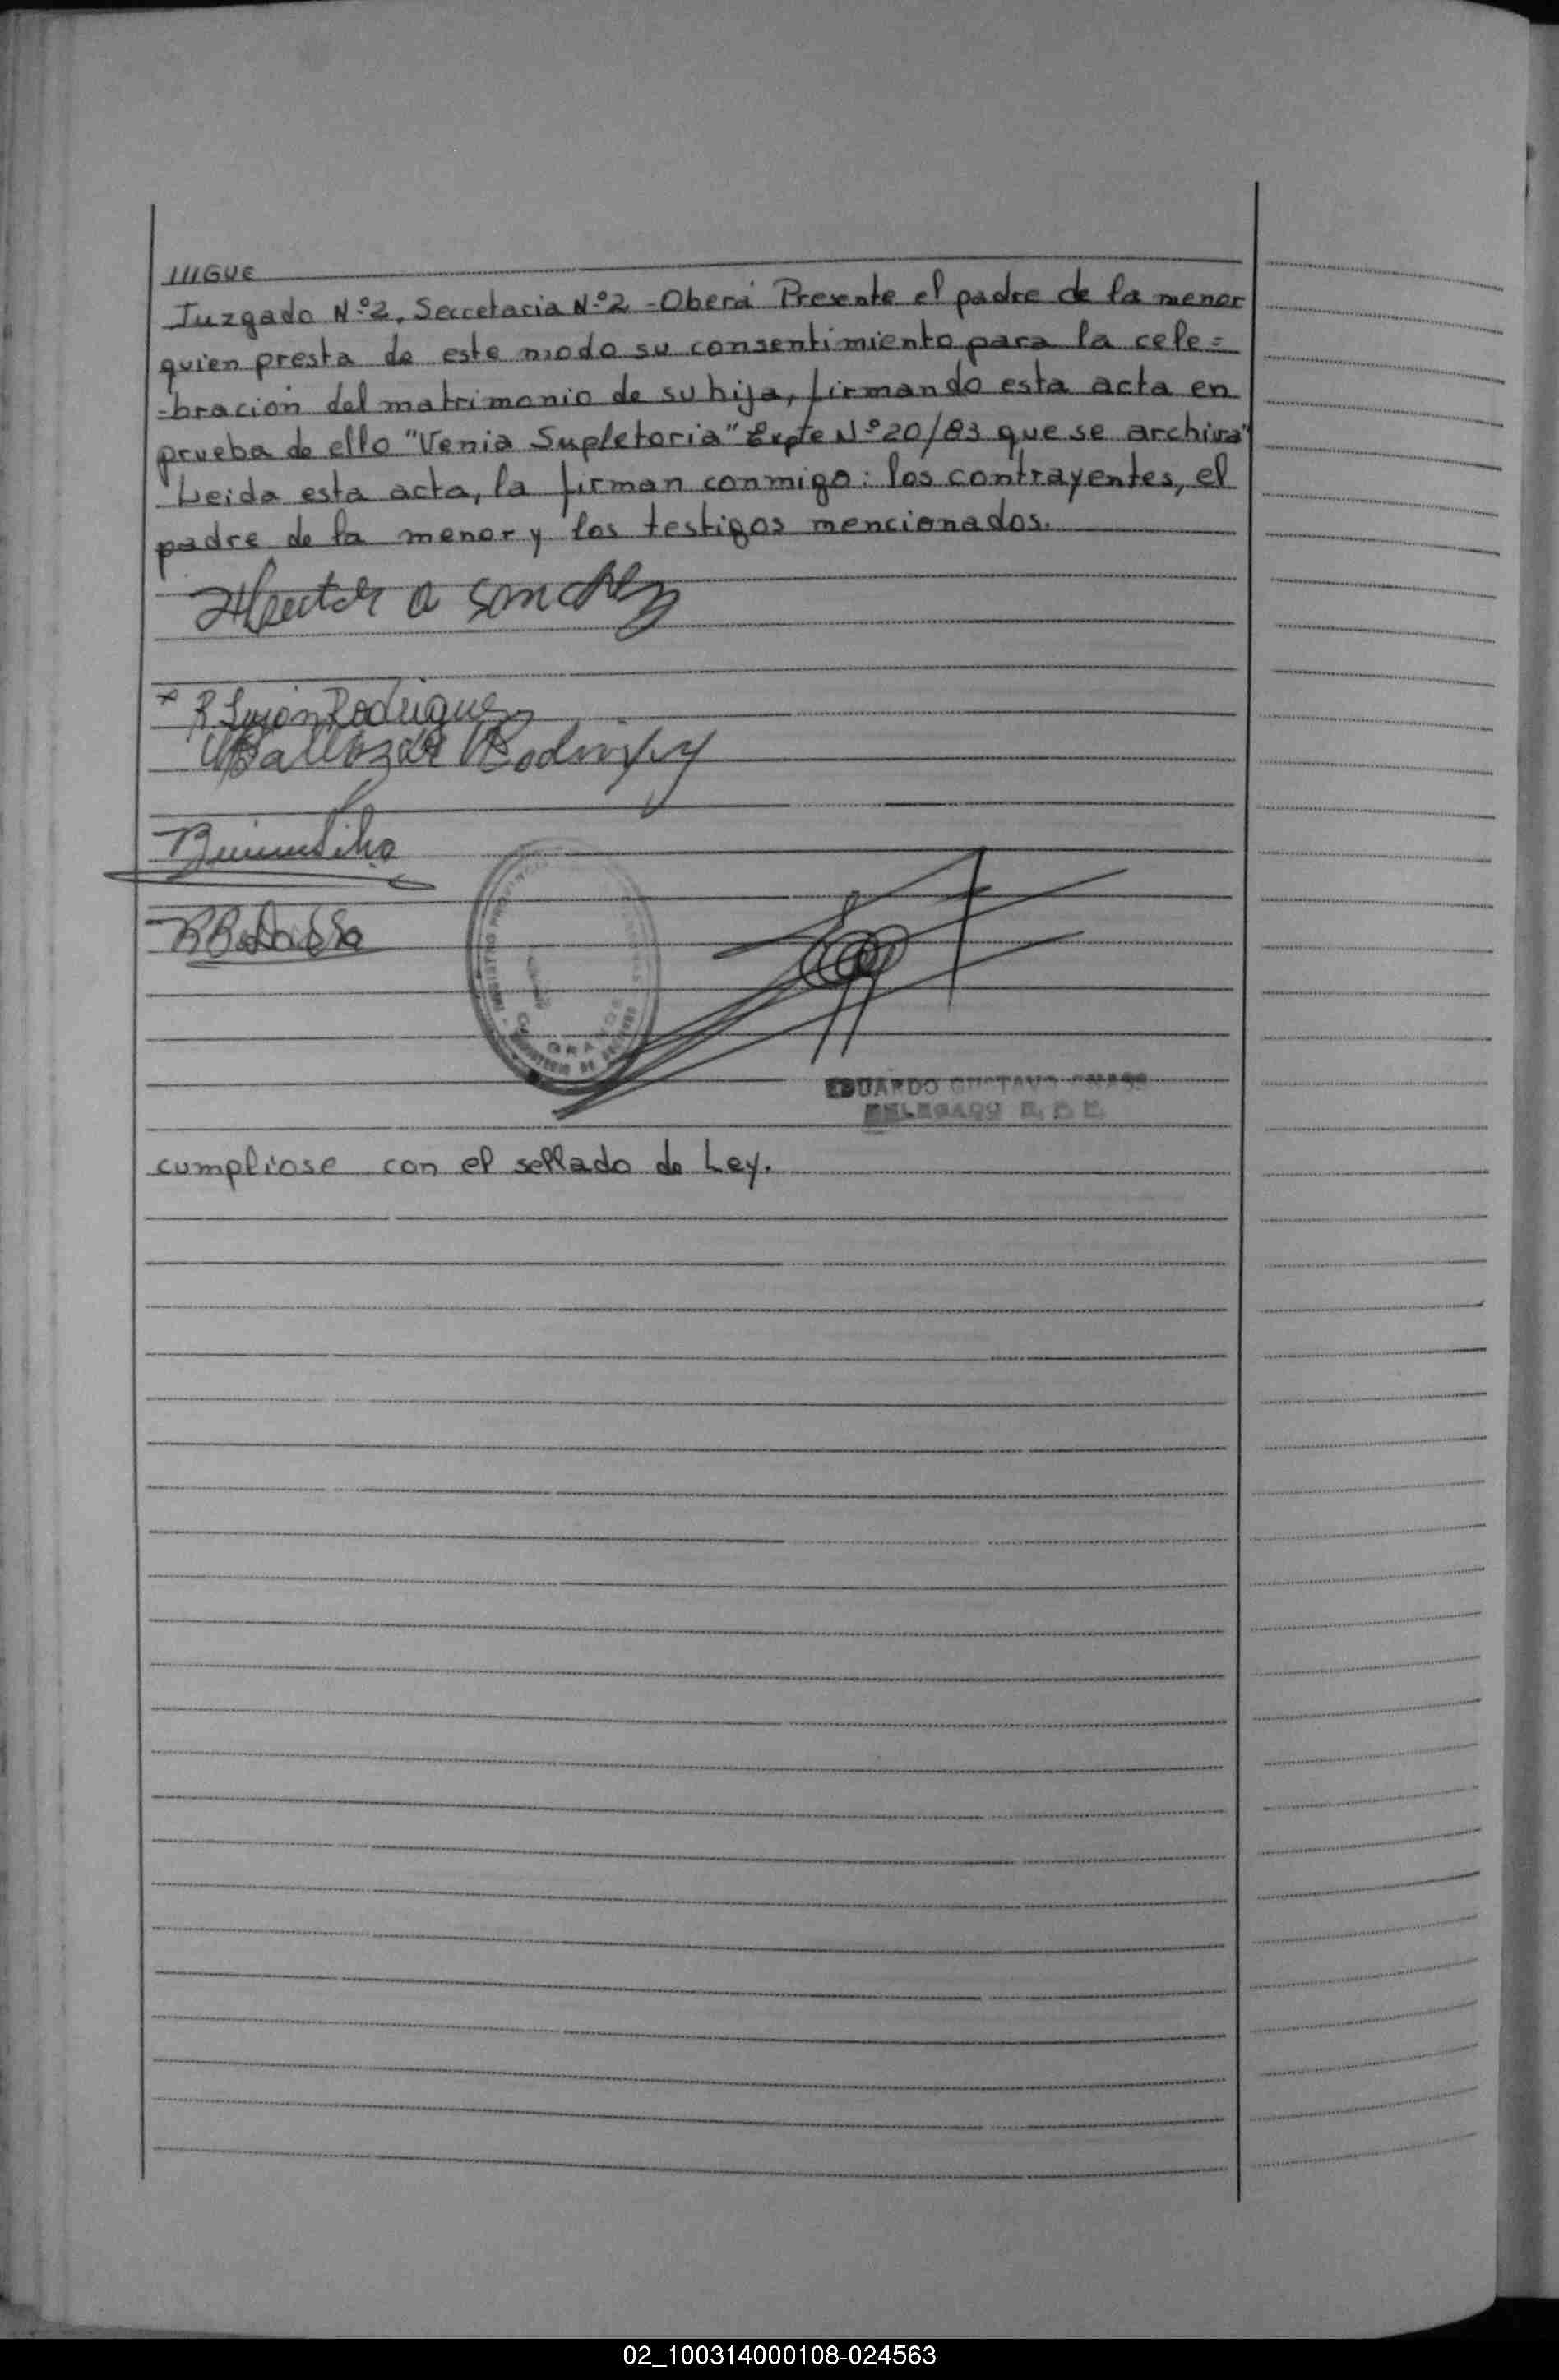 ///GUE
Juzgado N.º2, Secretaria N.º2 - Oberá Presente el padre de la menor
quien presta de este modo su consentimiento para la cele=
=bracion del matrimonio de su hija, firmando esta acta en
prueba de ello "Venia Supletoria" Expte Nº20/83 que se archiva"
Leida esta acta, la firman conmigo: los contrayentes, el
padre de la menor y los testigos mencionados.
Hector a Sanchez
R Lujan Rodriguez
Baltazar Rodriguez
EDUARDO GUSTAVO
DELEGADO
cumpliose con el sellado de Ley.
02_100314000108-024563